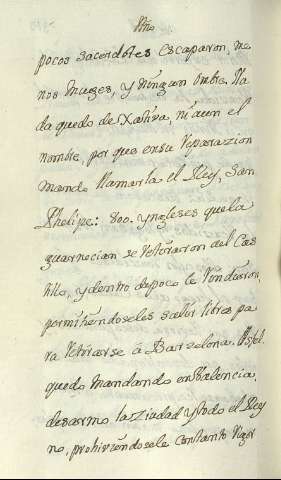 Año
pocos sacerdotes escaparon, me
nos Mugeres, y Ningun ombre. Na
da quedo de Xativa, ni aun el
nombre, por que en su Reparazion
mando llamarla el Rey, San
Phelipe: 800. yngleses que la
guarnecian se Retiraron del Cas
tillo, y dentro de poco le Rindieron,
permitiendoseles salir libres pa
ra Retirarse à Barzelona. Asfel.
quedo mandando en Valencia,
desarmo la Ziudad y todo el Rey
no, prohiviendosele con tanto Rigor